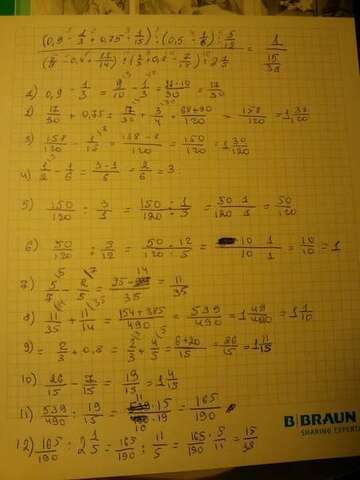 (0,9 - 1/3 + 0,75 - 1/15) : (0,5 - 1/6) : 5/12
(5/7 - 0,4 + 11/14) : (2/3 + 0,8 - 7/15) : 2 1/5 = 1 / 15/38
0,9 - 1/3 = 9/10 - 1/3 = 27-10/30 = 17/30
2) 17/30 + 0,75 = 17/30 + 3/4 = 68+90/120 = 158/120 = 1 38/120
3) 158/120 - 1/15 = 158-8/120 = 150/120 = 1 30/120
4) 1/2 - 1/6 = 3-1/6 = 2/6 = 3
5) 150/120 : 3/1 = 150/120 : 1/3 = 50 1/120 1 = 50/120
6) 50/120 : 5/12 = 50/120 : 12/5 = 10 1/10 1 = 10/10 = 1
7) 5/7 - 2/5 = 25-14/35 = 11/35
8) 11/35 + 11/14 = 154+385/490 = 539/490 = 1 49/490 = 1 1/10
9) = 2/3 + 0,8 = 2/3 + 4/5 = 6+20/15 = 26/15 = 1 11/15
10) 26/15 - 7/15 = 19/15 = 1 4/15
11) 539/490 : 19/15 = 11 · 15/10 · 19 = 165/190
12) 165/190 : 2 1/5 = 165/190 : 11/5 = 165/190 · 5/11 = 15/38
B|BRAUN
SHARING EXPERTIS